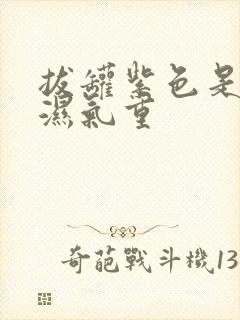 拔罐紫色是
濕氣重
奇葩戰斗機13